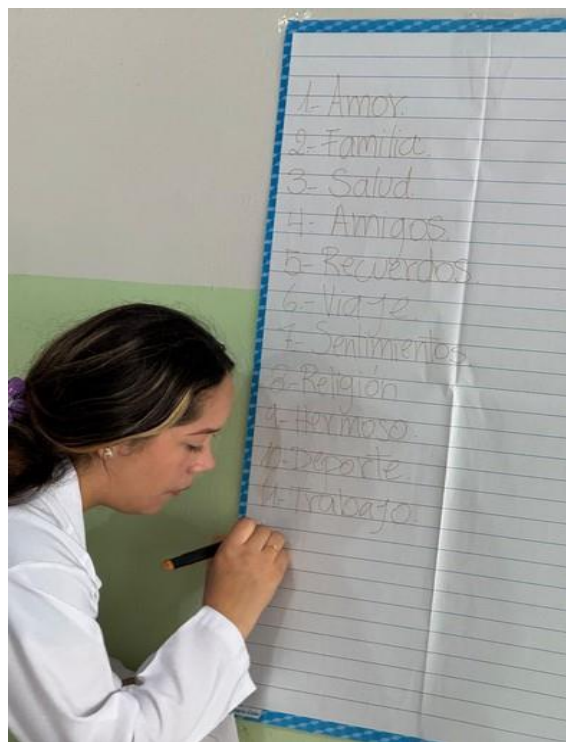 1- Amor.
2- Familia.
3- Salud
4- Amigos.
5- Recuerdos.
6.- Viaje.
7- Sentimientos.
8-Religión
9-Hermoso.
10-Deporte.
11-Trabajo